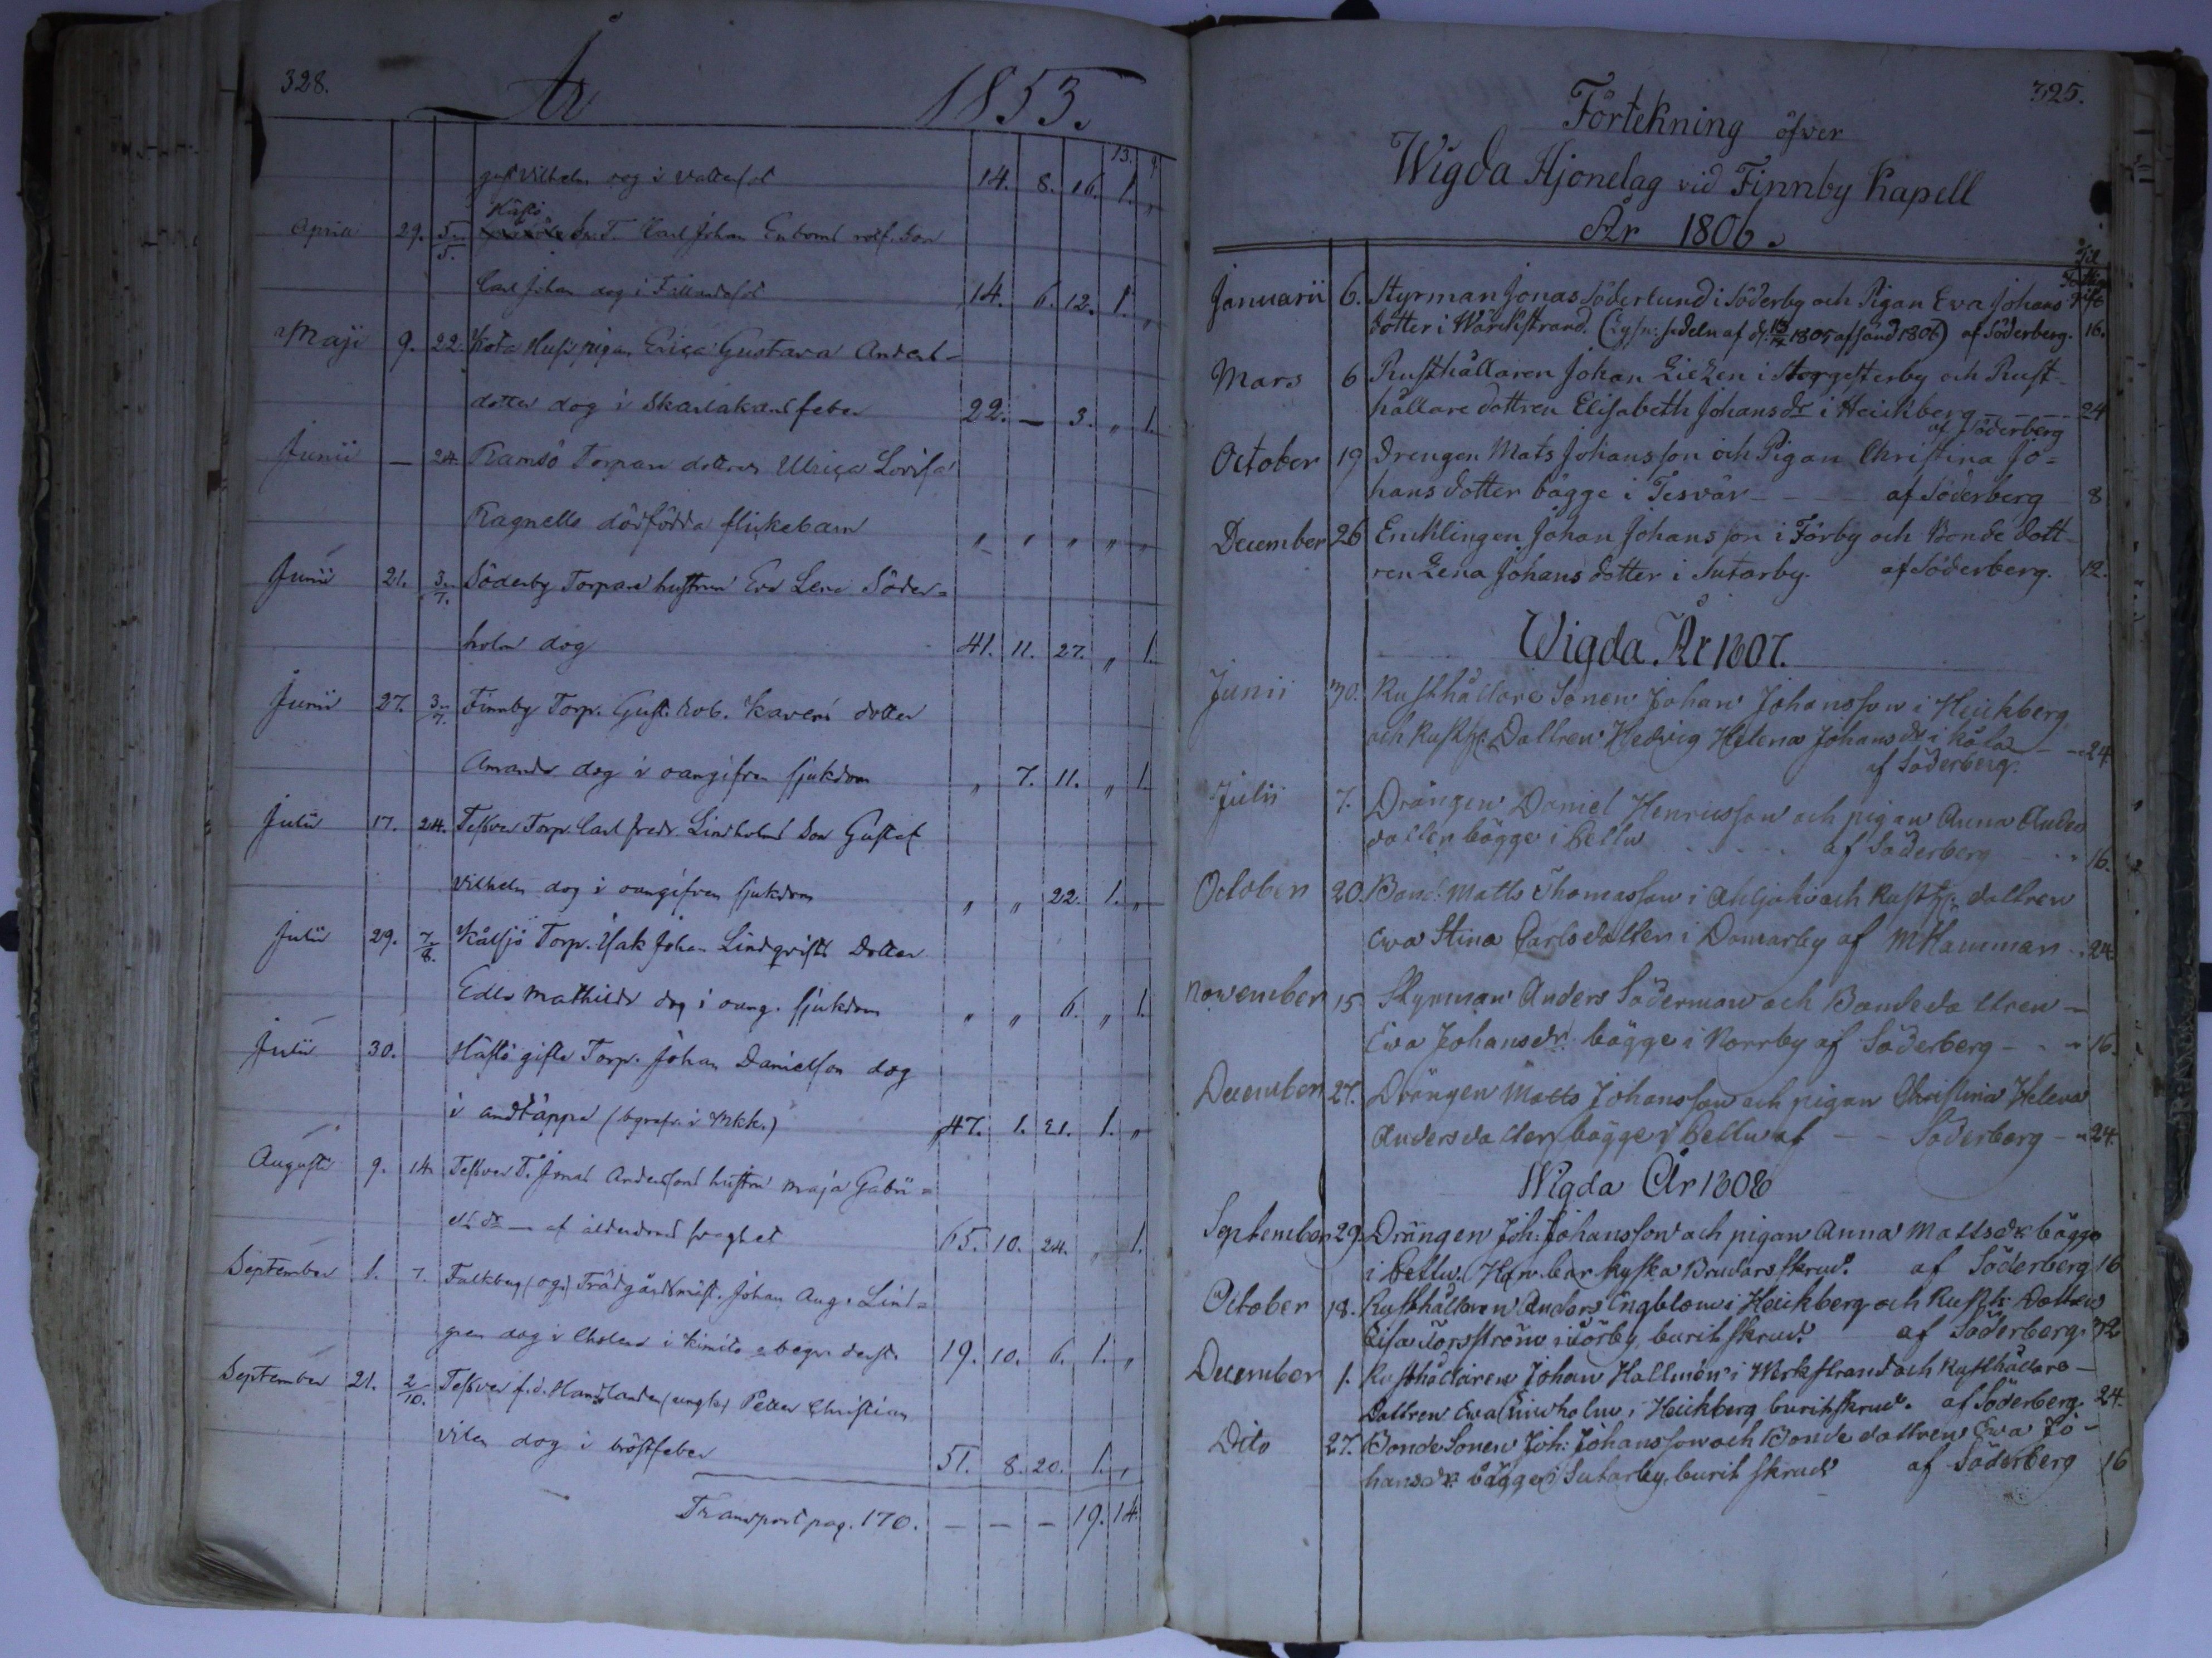 328.
År 1853.
13. 9.
Gust Vilhelm dog i Vattusot 14. 8. 16. 1. „
Aprill 29. 5/5. Hästö Sn. T. Carl Johan Enboms son
Carl Johan dog i Fallandesot 14. 6. 12. 1. „
Maji 9. 22. Kota Huus pigan Erica Gustava Anders-
dotter dog i Skarlakansfeber 22. — 3. „ 1.
Junii — 24. Ramsö Torpare dottren Ulrica Lovisa
Ragnells dödfödda flickebarn „ „ „ „ „
Junii 21. 3/7. Söderby Torpare hustrun Eva Lena Söder=
holm dog 41. 11. 27. „ 1.
Junii 27. 3/7. Finnby Torp. Gust. Rob. Kavens dotter
Amanda dog i oangifven sjukdom „ 7. 11. „ 1.
Julii 17. 24. Tesver Torp. Carl Fredr Lindholms Son Gustaf
Vilhelm dog i oangifven sjukdom „ „ 22. 1. „
Julii 29. 7/8. Kålsjö Torp. Isak Johan Lindqvists Dotter
Edla Mathilda dog i oang. sjukdom „ „ 6. „ 1.
Julii 30. Hästö gifte Torp. Johan Danielson dog
i andtäppa (begrafv. i Mkk.) 47. 1. 21. 1. „
Augusti 9. 14. Tesver T. Jonas Andersons hustru Maja Gabri=
elsdr — af ålderdoms svaghet 65. 10. 24. „ 1.
September 1. 7. Falkberg (ogi) Trädgårdsmäst. Johan Aug. Lind=
gren dog i i Kimito begr. derst. 19. 10. 6. 1. „
September 21. 2/10. Tesver f.d. Handlanden (ungkr) Petter Christian
Vilen dog i bröstfeber 51. 8. 20. 1. „
Transport pag. 170. — — — 19. 14.
325.
Förtekning öfver
Wigda Hjonelag vid Finnby Kapell
År 1806.
Til
Januarii 6. Styrman Jonas Söderlund i Söderby och Pigan Eva Johans
dotter i Wärckstrand. (Lysn: sedeln af d. 1805 afsänd 1806) af Söderberg. 16.
Mars 6 Rusthållaren Johan Liezen i Norgesterby och Rust-
hållare dottren Elisabeth Johansdr i Heickberg - - - - 24
af Söderberg
October 19 Drengen Mats Johansson och Pigan Christina Jo=
hansdotter bägge i Tesvär - - af Söderberg 8
December 26 Encklingen Johan Johansson i Förby och Bonde dott-
ren Lena Johans dotter i Sutarby. af Söderberg. 12.
Wigda År 1807.
Junii 30. Rusthållare Sonen Johan Johansson i Heickberg
och Rusth: Dottren Hedvig Helena Johansdr i Kåla - - 24
af Söderberg.
Julii 7. Drängen Daniel Henricsson och pigan Anna Anders
dotter bägge i Pettu . . . . . af Söderberg - - „ 16.
October 20. Bond: Matts Thomasson i Ahljoki och Rusth: dottren
Ewa Stina Carlsdotter i Domarby af M Hamman - . 24.
November 15. Styrman Anders Söderman och Bondedottren -
Ewa Johansdr. bägge i Norrby af Söderberg - - „ 16.
December 27. Drängen Matts Johansson och pigan Christina Helena
Andersdotter bägge i Pettu af - - Söderberg - „ 24.
Wigda År 1808
September 29. Drängen Joh: Johansson och pigan Anna Mattsdr bägge
i Pettu. Brudars skrud. af Söderberg 16
October 18. Rusthållaren Anders Engblom i Heickberg och Rusth: Dottren
Lisa Forsström i Förby, burit skrud. af Söderberg. 32
December 1. Rusthållaren Johan Hallmén i Werkstrand och Rusthållare -
Dottren Ewa Enholm i Heickberg burit skrud. af Söderberg. 24.
Dito 27. Bonde Sonen Joh: Johansson och Bonde dottren Ewa Jo-
hansdr. bägge i Sutarby, burit skrud af Söderberg 16